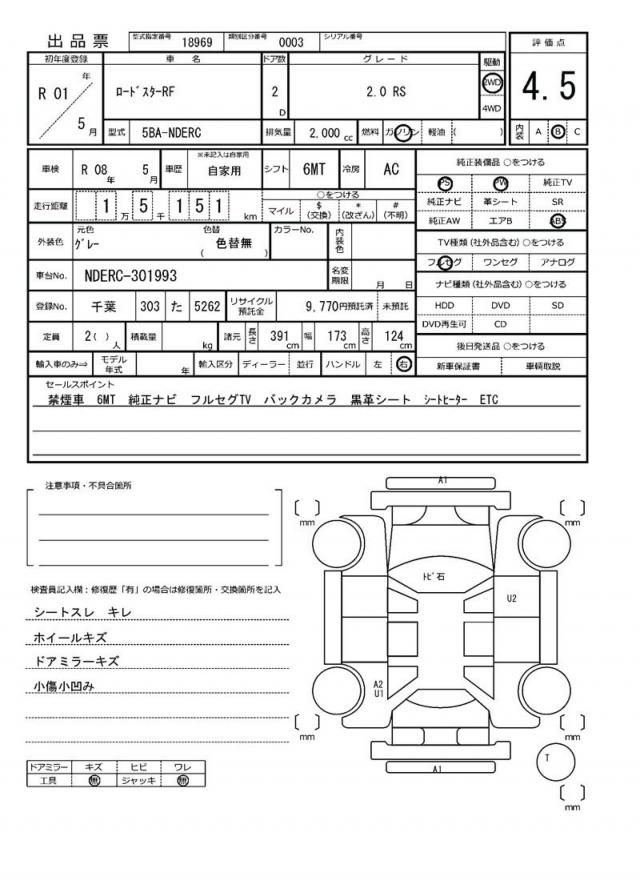 出品票 型式指定番号 18969 類別区分番号 0003 シリアル番号
評価点
4.5
初年度登録 車名 ドア数 グレード 駆動
R 01 年 5 月 ﾛｰﾄﾞｽﾀｰRF 2 D 2.0 RS 2WD 4WD
型式 5BA-NDERC 排気量 2,000 cc 燃料 ガソリン 軽油 ( )
内装 A B C
車検 R 08 年 5 月 車歴 ※未記入は自家用 自家用 シフト 6MT 冷房 AC
走行距離 1 万 5 千 1 5 1 km ○をつける
マイル $ (交換) * (改ざん) # (不明)
外装色 元色 ｸﾞﾚｰ 色替 ( 色替無 ) カラーNo. 内装色
車台No. NDERC-301993 名変期限 月 日
登録No. 千葉 303 た 5262 リサイクル預託金 9,770円預託済 未預託
定員 2( ) 人 積載量 kg 諸元 長さ 391 cm 幅 173 cm 高さ 124 cm
輸入車のみ⇒ モデル年式 年 輸入区分 ディーラー 並行 ハンドル 左 右
純正装備品 ○をつける
PS PW 純正TV
純正ナビ 革シート SR
純正AW エアB ABS
TV種類(社外品含む) ○をつける
フルセグ ワンセグ アナログ
ナビ種類(社外品含む) ○をつける
HDD DVD SD
DVD再生可 CD
後日発送品 ○をつける
新車保証書 車輌取説
セールスポイント
禁煙車 6MT 純正ナビ フルセグTV バックカメラ 黒革シート ｼｰﾄﾋｰﾀｰ ETC
注意事項・不具合箇所
検査員記入欄：修復歴「有」の場合は修復箇所・交換箇所を記入
シートスレ キレ
ホイールキズ
ドアミラーキズ
小傷小凹み
ドアミラー キズ ヒビ ワレ
工具 無 ジャッキ 無
A1
[ ] mm [ ] mm
ﾄﾋﾞ石
U2
A2
U1
[ ] mm [ ] mm
A1
T
[ ] mm